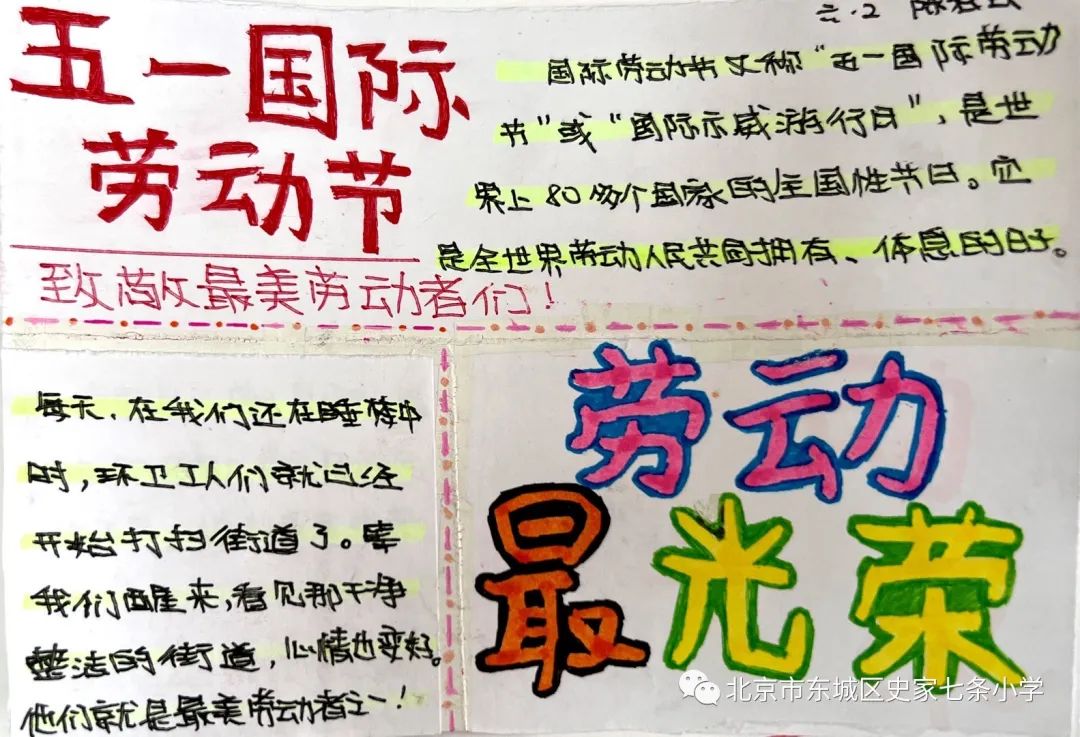 五一国际
劳动节
致敬最美劳动者们！
六.2
国际劳动节又称“五一国际劳动
节”或“国际示威游行日”，是世
界上80多个国家的全国性节日。它
是全世界劳动人民共同拥有、体息的日子。
每天，在我们还在睡梦中
时，环卫工人们就已经
开始打扫街道了。等
我们醒来，看见那干净
整洁的街道，心情也变好。
他们就是最美劳动者之一！
劳动
最光荣
北京市东城区史家七条小学